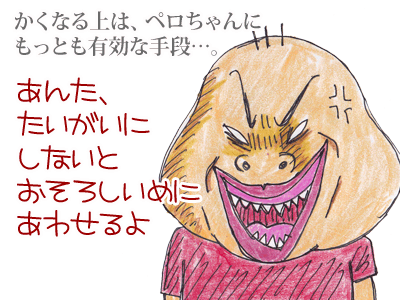 かくなる上は、ペロちゃんに
もっとも有効な手段…。
あんた、
たいがいに
しないと
おそろしいめに
あわせるよ